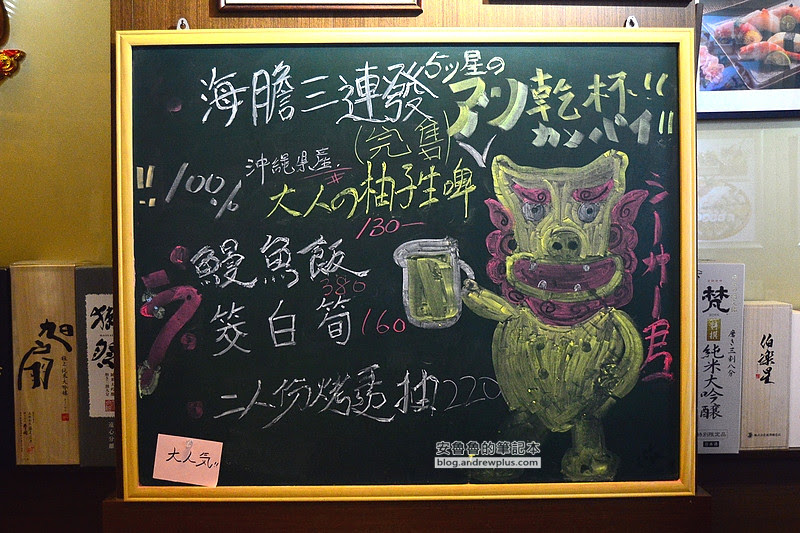 海膽三連發
5ツ星の
乾杯!!
カンパイ!!
(完售)
沖繩県産
!!100%
大人の柚子生啤
130-
鰻魚飯
380
筊白筍 160
二人份烤 220
シーサー君
大人気!!
梵
純米大吟醸
伯楽星
安魯魯的筆記本
blog.andrewplus.com